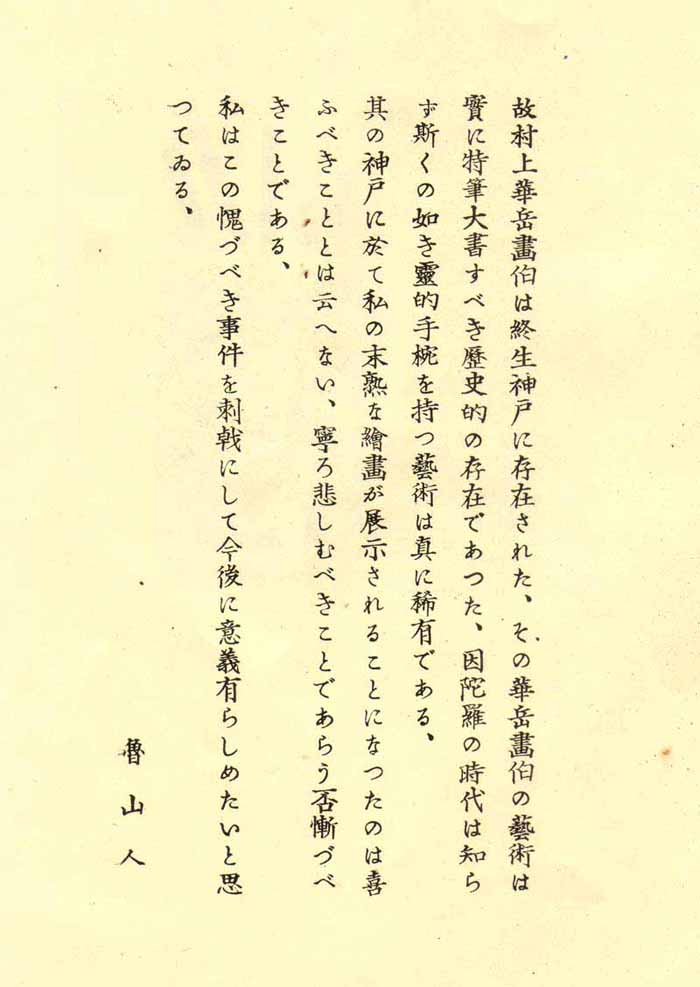 故村上華岳畫伯は終生神戸に存在された、その華岳畫伯の藝術は
實に特筆大書すべき歷史的の存在であつた、因陀羅の時代は知ら
ず斯くの如き靈的手椀を持つ藝術は真に稀有である、
其の神戸に於て私の末熟な繪畫が展示されることになつたのは喜
ふべきこととは云へない、寧ろ悲しむべきことであらう否慚づべ
きことである、
私はこの愧づべき事件を刺戟にして今後に意義有らしめたいと思
つてゐる、
魯山人